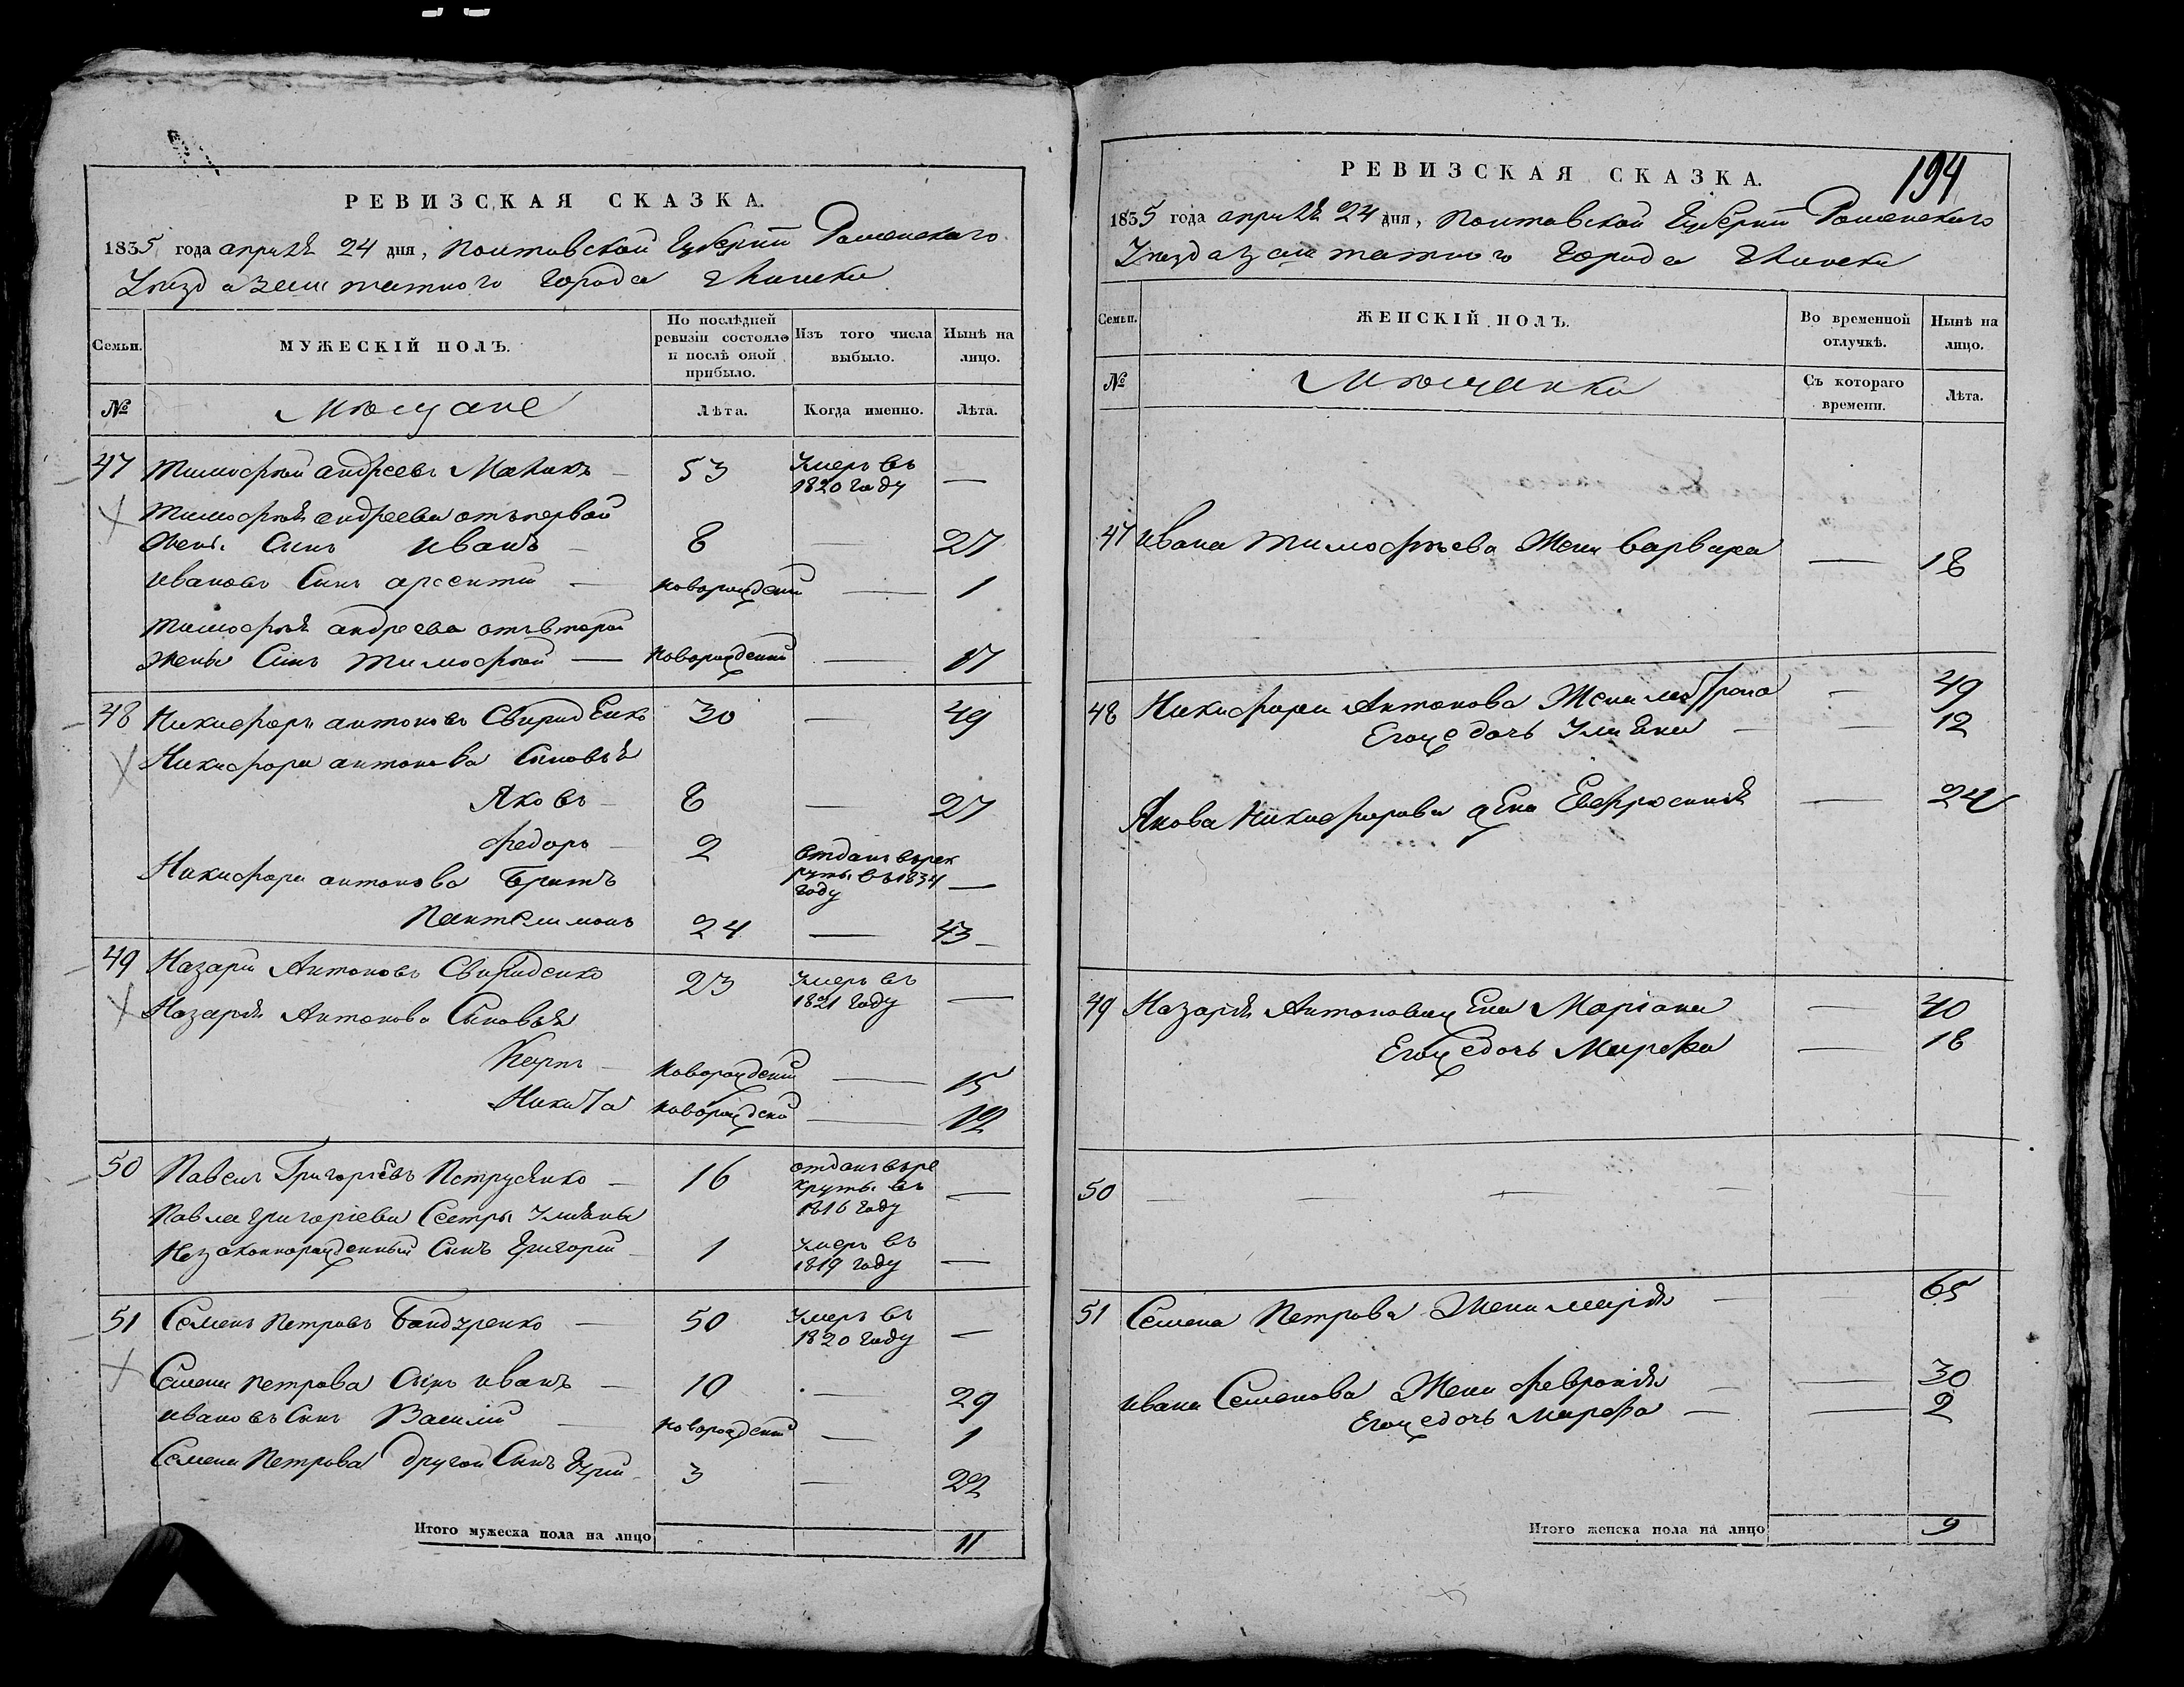 РЕВИЗСКАЯ СКАЗКА.
1835 года апрѣля 24 дня, Полтавской Губерніи Роменскаго
Уѣзда Заштатного города Глинска
Семьи.
МУЖЕСКІЙ ПОЛЪ.
По послѣдней ревизіи состояло и послѣ оной прибыло.
Изъ того числа выбыло.
Нынѣ на лицо.
№
Мѣщане
Лѣта.
Когда именно.
Лѣта.
47 Тимофѣй андреевъ Маликъ — 53 Умеръ въ 1820 году —
Тимофѣя андреева отъ первой
жены Сынъ иванъ — 8 — 27
ивановъ Сынъ арсентій — новорожденій — 1
Тимофѣя андреева отъ второй
жены Сынъ Тимофѣй — новорожденій — 17
48 Никифоръ антоновъ Свириденко 30 — 49
Никифора антонова Сыновья
Яковъ — 8 — 27
Федоръ — 2 отданъ врекруты въ 1834 году —
Никифора антонова Братъ
Пантелимонъ 24 — 43
49 Назарій Антоновъ Свириденко 23 Умеръ въ 1821 году —
Назарія Антонова Сыновья
Карпъ — новорожденій — 15
Никита новорожденій — 12
50 Павелъ Григоріевъ Петрусенко — 16 отданъ врекруты въ 1816 году —
Павла Григоріева Сестры Ульяны
Незаконнорожденный Сынъ Григорій — 1 Умеръ въ 1819 году —
51 Семенъ Петровъ Бондуренко — 50 Умеръ въ 1820 году —
Семена Петрова Сынъ иванъ — 10 — 29
ивановъ Сынъ Василій — новорожденій — 1
Семена Петрова другой Сынъ 3 — 22
Итого мужеска пола на лицо 11
194
РЕВИЗСКАЯ СКАЗКА.
1835 года апрѣля 24 дня, Полтавской Губерніи Роменскаго
Уѣзда Заштатного города Глинска
Семьи.
ЖЕНСКІЙ ПОЛЪ.
Во временной отлучкѣ.
Нынѣ на лицо.
№
Мѣщанки
Съ котораго времени.
Лѣта.
47 ивана Тимофѣева Жена варвара — 18
48 Никифора Антонова Жена мотрона — 49
Егожедочь Ульяна — 12
Якова Никифорова жена Евфросинія — 24
49 Назарія Антонова жена Маріана — 40
Егожедочь Марфа — 18
50 — — — —
51 Семена Петрова Жена марія — 65
ивана Семенова Жена февронія — 30
Егожедочь Марфа — 2
Итого женска пола на лицо 9